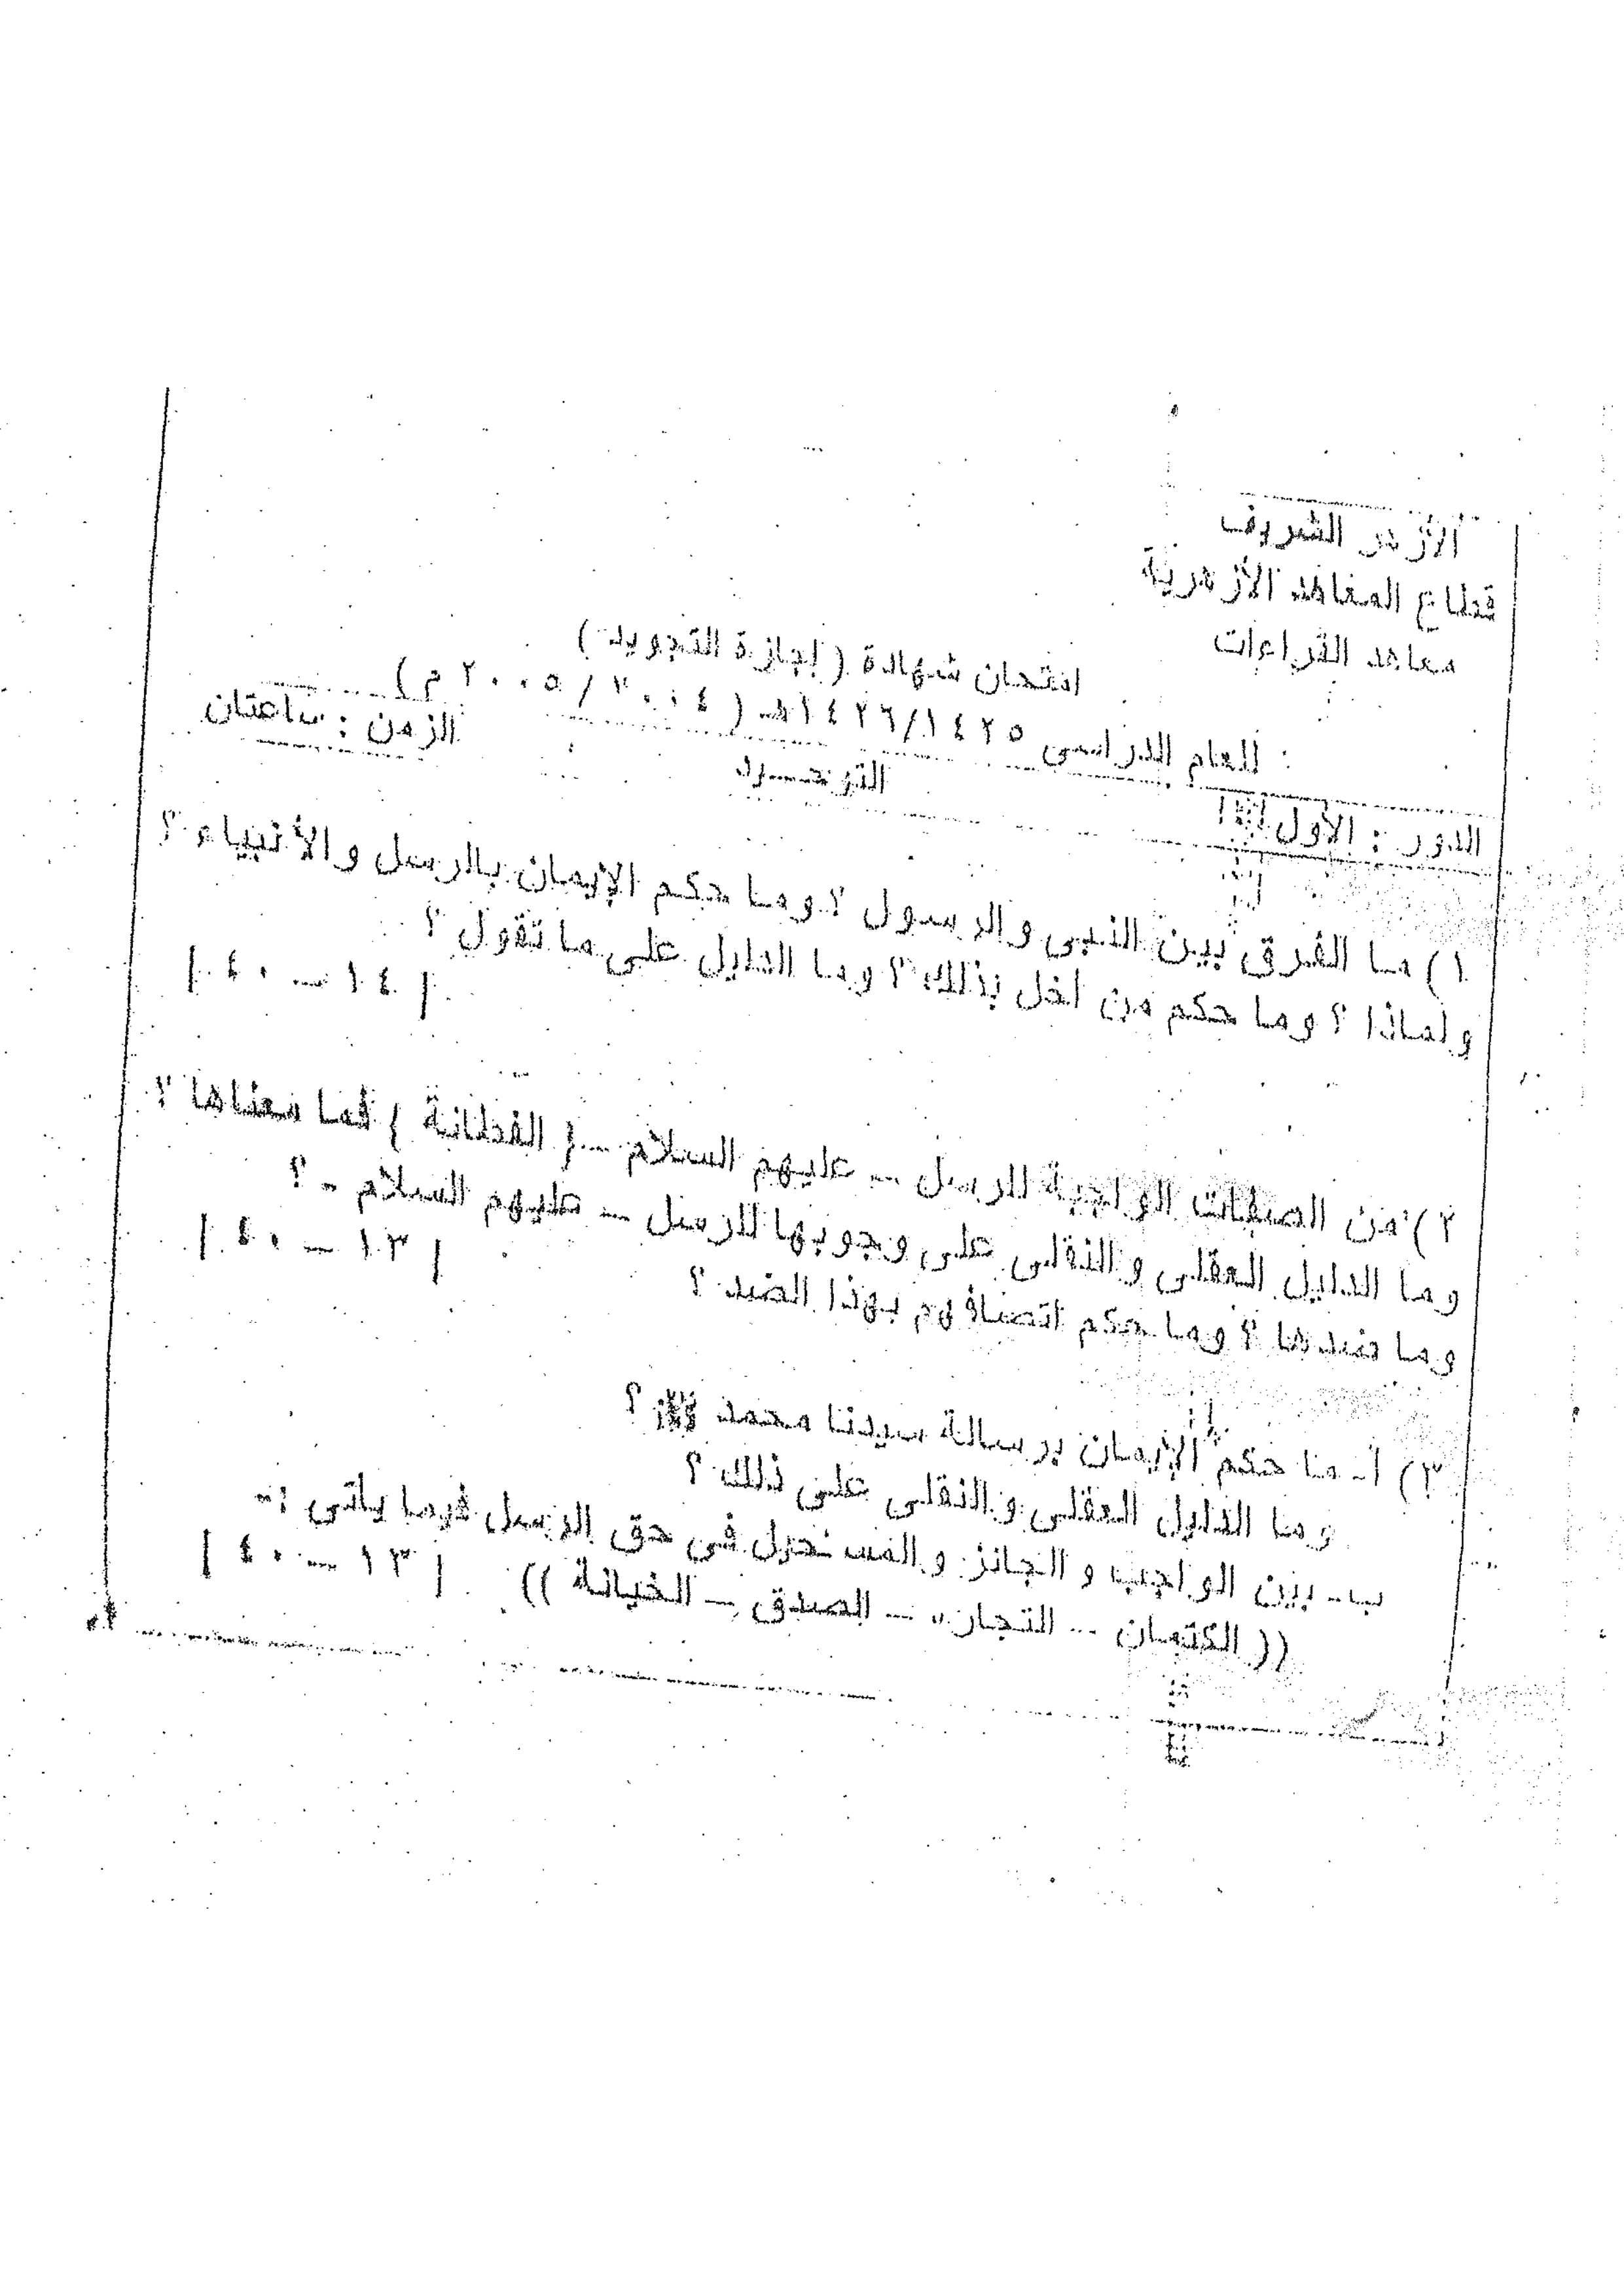 الأزهر الشريف
قطاع المعاهد الأزهرية
معاهد القراءات
امتحان شهادة ( إجازة التجويد )
للعام الدراسى ١٤٢٦/١٤٢٥هـ ( ٢٠٠٥ / ٢٠٠٤ م )
الدور : الأول التوحيد الزمن : ساعتان
١) ما الفرق بين النبى والرسول ؟ وما حكم الإيمان بالرسل والأنبياء ؟
ولماذا ؟ وما حكم من أخل بذلك ؟ وما الدليل على ما تقول ؟ / ١٤ – ٤٠ /
٢) من الصفات الواجبة للرسل – عليهم السلام – { الفطانة } فما معناها ؟
وما الدليل العقلى والنقلى على وجوبها للرسل – عليهم السلام - ؟
وما ضدها ؟ وما حكم اتصافهم بهذا الضد ؟ / ١٣ – ٤٠ /
٣) أ- ما حكم الإيمان برسالة سيدنا محمد ﷺ ؟
وما الدليل العقلى والنقلى على ذلك ؟
ب- بين الواجب والجائز والمستحيل فى حق الرسل فيما يأتى :-
(( الكتمان – التجارة – الصدق – الخيانة )) / ١٣ – ٤٠ /